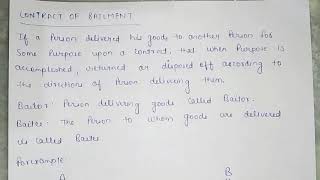 CONTRACT OF BAILMENT
If a Person delivered his goods to another Person for
Some Purpose upon a contract, that when Purpose is
accomplished, returned or disposed off according to
the directions of Person delivering them
Bailor: Person delivering goods called Bailor.
Bailee: The Person to whom goods are delivered
is called Bailee
For example
A B